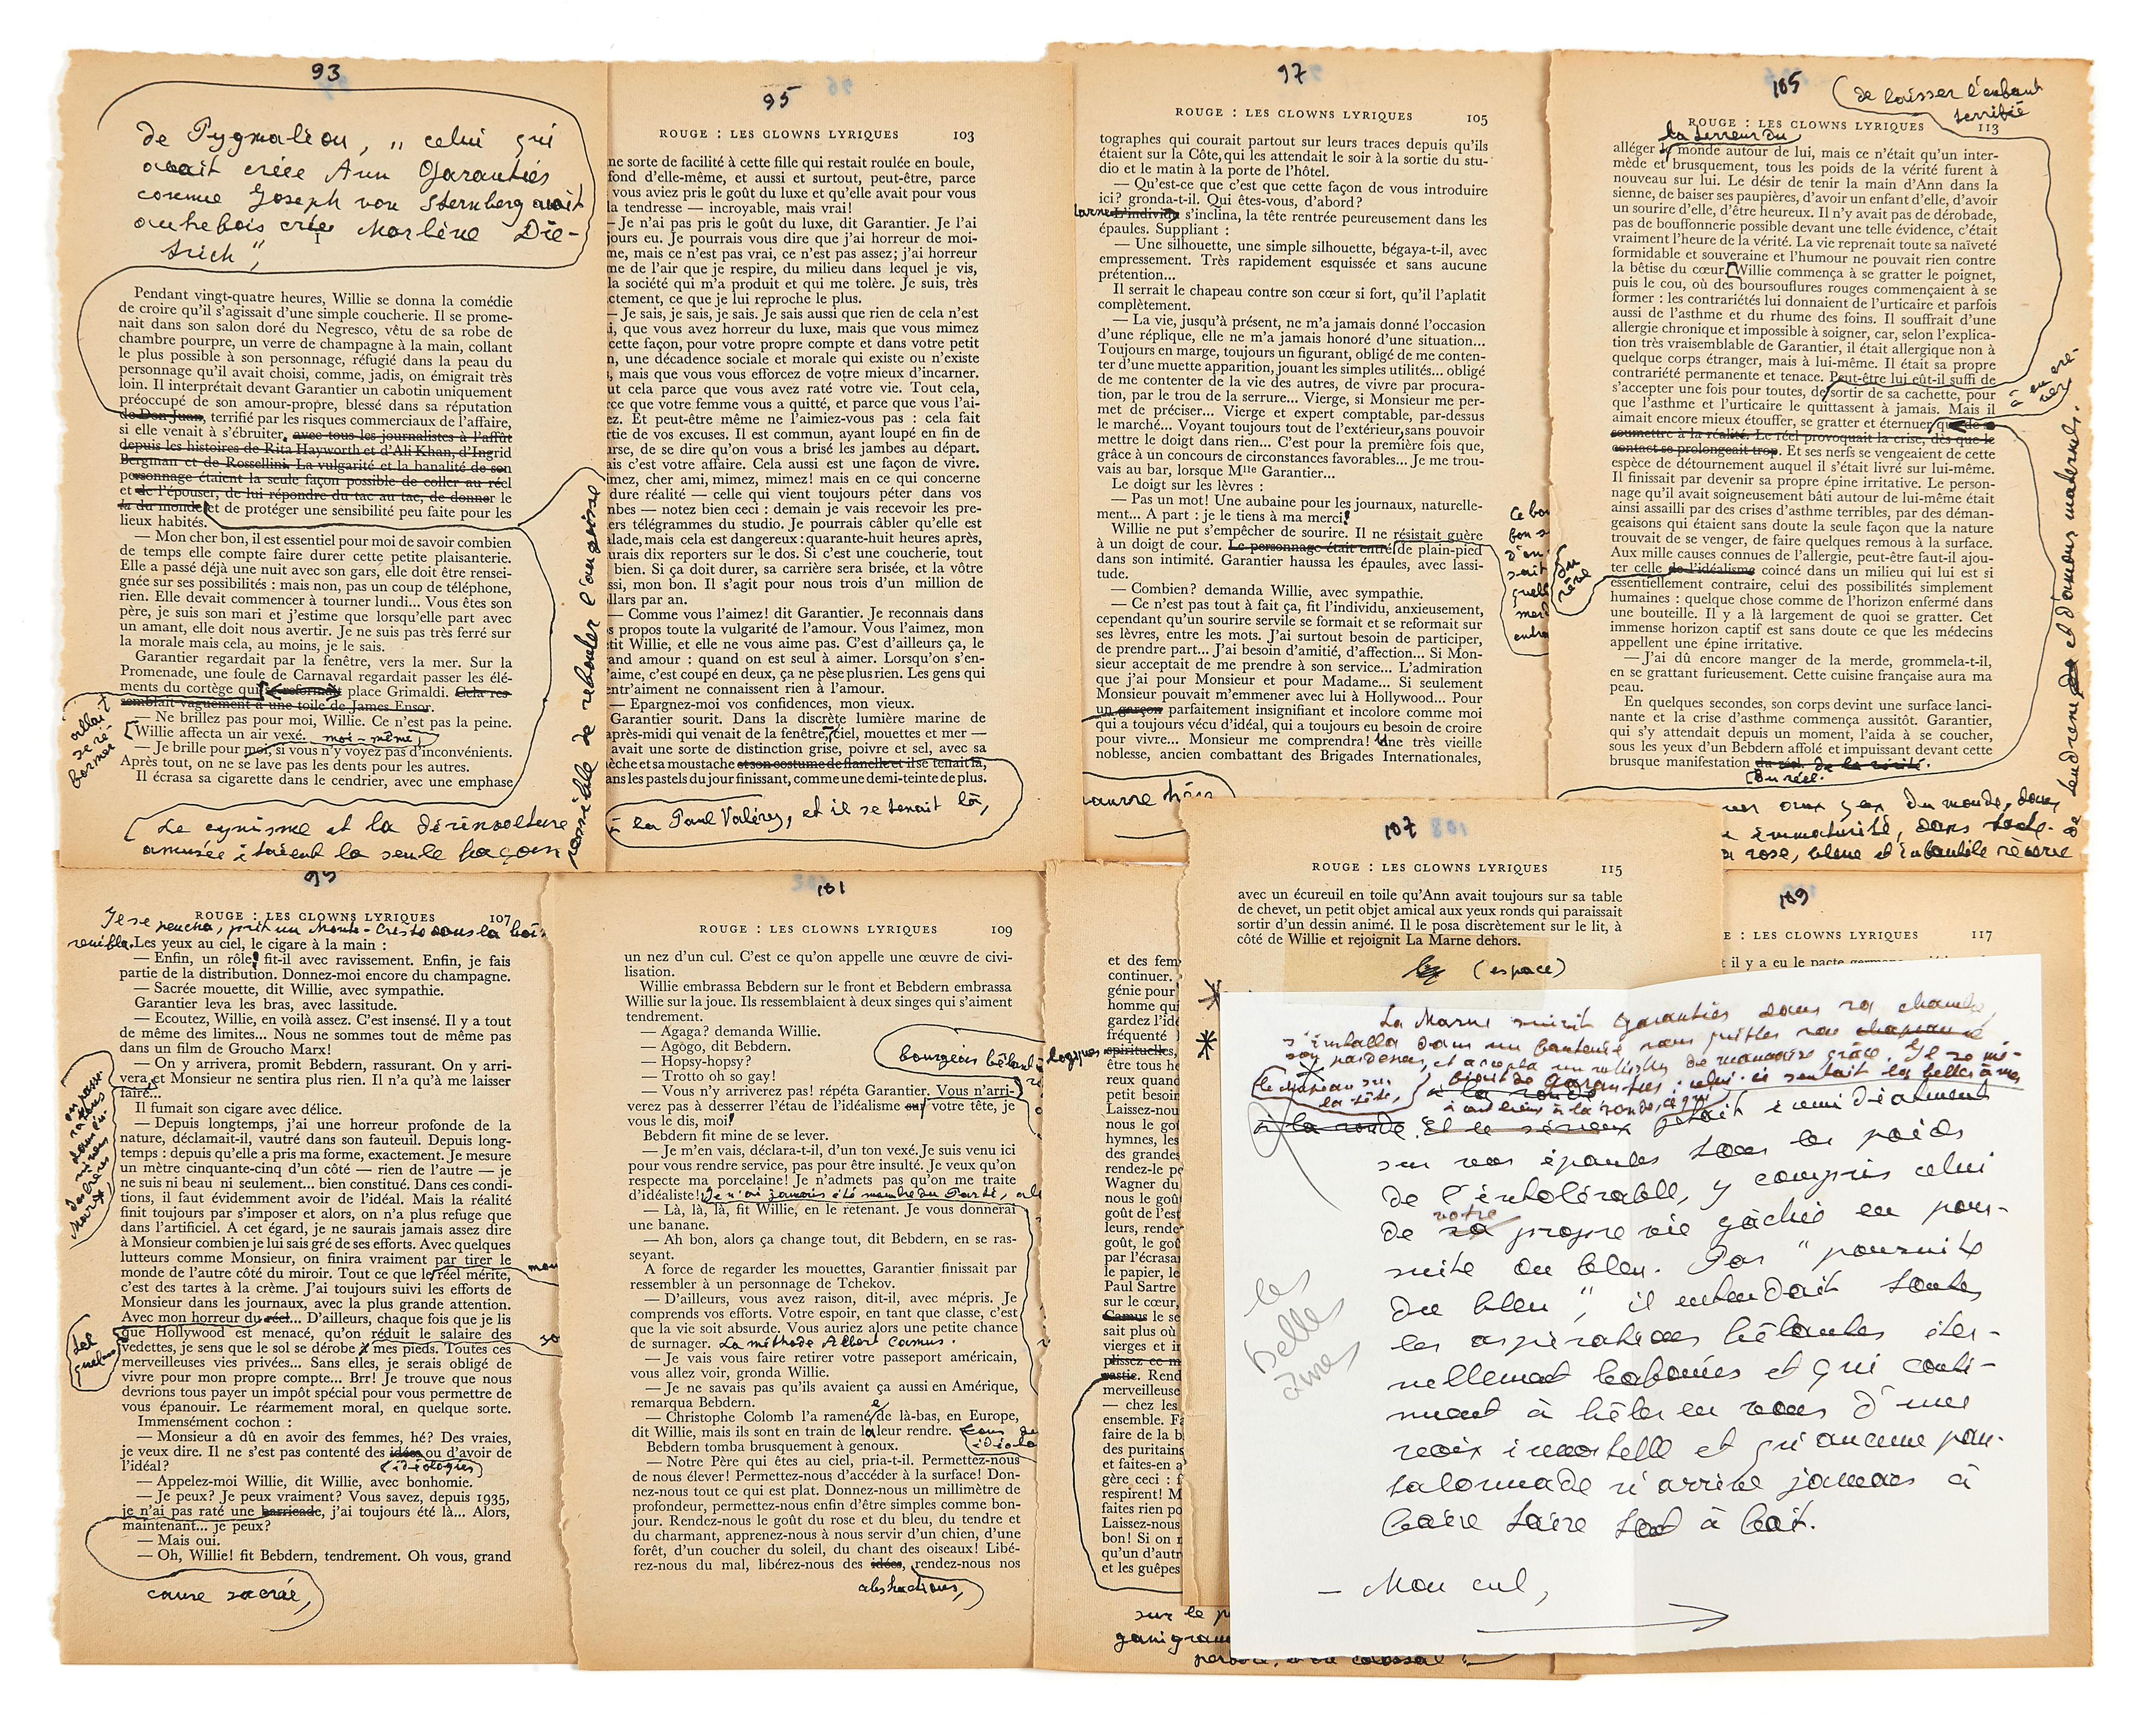 93
de Pygmalion, „ celui qui
avait créée Ann Garantiés
comme Joseph von Sternberg avait
autrefois crée Marlène Die-
trich",
Pendant vingt-quatre heures, Willie se donna la comédie
de croire qu'il s'agissait d'une simple coucherie. Il se prome-
nait dans son salon doré du Negresco, vêtu de sa robe de
chambre pourpre, un verre de champagne à la main, collant
le plus possible à son personnage, réfugié dans la peau du
personnage qu'il avait choisi, comme, jadis, on émigrait très
loin. Il interprétait devant Garantier un cabotin uniquement
préoccupé de son amour-propre, blessé dans sa réputation
de Don Juan, terrifié par les risques commerciaux de l'affaire,
si elle venait à s'ébruiter, avec tous les journalistes à l'affût
depuis les histoires de Rita Hayworth et d'Ali Khan, d'Ingrid
Bergman et de Rossellini. La vulgarité et la banalité de son
personnage étaient la seule façon possible de coller au réel
et de l'épouser, de lui répondre du tac au tac, de donner le
la du monde et de protéger une sensibilité peu faite pour les
lieux habités.
— Mon cher bon, il est essentiel pour moi de savoir combien
de temps elle compte faire durer cette petite plaisanterie.
Elle a passé déjà une nuit avec son gars, elle doit être rensei-
gnée sur ses possibilités : mais non, pas un coup de téléphone,
rien. Elle devait commencer à tourner lundi... Vous êtes son
père, je suis son mari et j'estime que lorsqu'elle part avec
un amant, elle doit nous avertir. Je ne suis pas très ferré sur
la morale mais cela, au moins, je le sais.
Garantier regardait par la fenêtre, vers la mer. Sur la
Promenade, une foule de Carnaval regardait passer les élé-
ments du cortège qui se reformait place Grimaldi. Cela res-
semblait vaguement à une toile de James Ensor.
— Ne brillez pas pour moi, Willie. Ce n'est pas la peine.
Willie affecta un air vexé. moi-même
— Je brille pour moi, si vous n'y voyez pas d'inconvénients.
Après tout, on ne se lave pas les dents pour les autres.
Il écrasa sa cigarette dans le cendrier, avec une emphase
allait
se re-
former
Le cynisme et la désinvolture
amusée étaient la seule façon
possible de refouler l'angoisse
95
ROUGE : LES CLOWNS LYRIQUES 103
ne sorte de facilité à cette fille qui restait roulée en boule,
fond d'elle-même, et aussi et surtout, peut-être, parce
vous aviez pris le goût du luxe et qu'elle avait pour vous
la tendresse — incroyable, mais vrai!
— Je n'ai pas pris le goût du luxe, dit Garantier. Je l'ai
jours eu. Je pourrais vous dire que j'ai horreur de moi-
me, mais ce n'est pas vrai, ce n'est pas assez; j'ai horreur
me de l'air que je respire, du milieu dans lequel je vis,
la société qui m'a produit et qui me tolère. Je suis, très
ctement, ce que je lui reproche le plus.
— Je sais, je sais, je sais. Je sais aussi que rien de cela n'est
i, que vous avez horreur du luxe, mais que vous mimez
cette façon, pour votre propre compte et dans votre petit
n, une décadence sociale et morale qui existe ou n'existe
, mais que vous vous efforcez de votre mieux d'incarner.
ut cela parce que vous avez raté votre vie. Tout cela,
rce que votre femme vous a quitté, et parce que vous l'ai-
ez. Et peut-être même ne l'aimiez-vous pas : cela fait
rtie de vos excuses. Il est commun, ayant loupé en fin de
urse, de se dire qu'on vous a brisé les jambes au départ.
ais c'est votre affaire. Cela aussi est une façon de vivre.
imez, cher ami, mimez, mimez! mais en ce qui concerne
dure réalité — celle qui vient toujours péter dans vos
mbes — notez bien ceci : demain je vais recevoir les pre-
ers télégrammes du studio. Je pourrais câbler qu'elle est
alade, mais cela est dangereux : quarante-huit heures après,
urais dix reporters sur le dos. Si c'est une coucherie, tout
bien. Si ça doit durer, sa carrière sera brisée, et la vôtre
ssi, mon bon. Il s'agit pour nous trois d'un million de
llars par an.
— Comme vous l'aimez! dit Garantier. Je reconnais dans
s propos toute la vulgarité de l'amour. Vous l'aimez, mon
tit Willie, et elle ne vous aime pas. C'est d'ailleurs ça, le
and amour : quand on est seul à aimer. Lorsqu'on s'en-
'aime, c'est coupé en deux, ça ne pèse plus rien. Les gens qui
entr'aiment ne connaissent rien à l'amour.
— Epargnez-moi vos confidences, mon vieux.
Garantier sourit. Dans la discrète lumière marine de
après-midi qui venait de la fenêtre, ciel, mouettes et mer —
avait une sorte de distinction grise, poivre et sel, avec sa
èche et sa moustache et son costume de flanelle et il se tenait là,
ans les pastels du jour finissant, comme une demi-teinte de plus.
à la Paul Valéry, et il se tenait là,
97
ROUGE : LES CLOWNS LYRIQUES 105
tographes qui courait partout sur leurs traces depuis qu'ils
étaient sur la Côte, qui les attendait le soir à la sortie du stu-
dio et le matin à la porte de l'hôtel.
— Qu'est-ce que c'est que cette façon de vous introduire
ici? gronda-t-il. Qui êtes-vous, d'abord?
L'individu s'inclina, la tête rentrée peureusement dans les
épaules. Suppliant :
— Une silhouette, une simple silhouette, bégaya-t-il, avec
empressement. Très rapidement esquissée et sans aucune
prétention...
Il serrait le chapeau contre son cœur si fort, qu'il l'aplatit
complètement.
— La vie, jusqu'à présent, ne m'a jamais donné l'occasion
d'une réplique, elle ne m'a jamais honoré d'une situation...
Toujours en marge, toujours un figurant, obligé de me conten-
ter d'une muette apparition, jouant les simples utilités... obligé
de me contenter de la vie des autres, de vivre par procura-
tion, par le trou de la serrure... Vierge, si Monsieur me per-
met de préciser... Vierge et expert comptable, par-dessus
le marché... Voyant toujours tout de l'extérieur, sans pouvoir
mettre le doigt dans rien... C'est pour la première fois que,
grâce à un concours de circonstances favorables... Je me trou-
vais au bar, lorsque Mlle Garantier...
Le doigt sur les lèvres :
— Pas un mot! Une aubaine pour les journaux, naturelle-
ment... A part : je le tiens à ma merci!
Willie ne put s'empêcher de sourire. Il ne résistait guère
à un doigt de cour. Le personnage était entré de plain-pied
dans son intimité. Garantier haussa les épaules, avec lassi-
tude.
— Combien? demanda Willie, avec sympathie.
— Ce n'est pas tout à fait ça, fit l'individu, anxieusement,
cependant qu'un sourire servile se formait et se reformait sur
ses lèvres, entre les mots. J'ai surtout besoin de participer,
de prendre part... J'ai besoin d'amitié, d'affection... Si Mon-
sieur acceptait de me prendre à son service... L'admiration
que j'ai pour Monsieur et pour Madame... Si seulement
Monsieur pouvait m'emmener avec lui à Hollywood... Pour
un garçon parfaitement insignifiant et incolore comme moi
qui a toujours vécu d'idéal, qui a toujours eu besoin de croire
pour vivre... Monsieur me comprendra! Une très vieille
noblesse, ancien combattant des Brigades Internationales,
105
de laisser l'enfant
terrifié
ROUGE : LES CLOWNS LYRIQUES 113
la terreur du
alléger le monde autour de lui, mais ce n'était qu'un inter-
mède et brusquement, tous les poids de la vérité furent à
nouveau sur lui. Le désir de tenir la main d'Ann dans la
sienne, de baiser ses paupières, d'avoir un enfant d'elle, d'avoir
un sourire d'elle, d'être heureux. Il n'y avait pas de dérobade,
pas de bouffonnerie possible devant une telle évidence, c'était
vraiment l'heure de la vérité. La vie reprenait toute sa naïveté
formidable et souveraine et l'humour ne pouvait rien contre
la bêtise du cœur. Willie commença à se gratter le poignet,
puis le cou, où des boursouflures rouges commençaient à se
former : les contrariétés lui donnaient de l'urticaire et parfois
aussi de l'asthme et du rhume des foins. Il souffrait d'une
allergie chronique et impossible à soigner, car, selon l'explica-
tion très vraisemblable de Garantier, il était allergique non à
quelque corps étranger, mais à lui-même. Il était sa propre
contrariété permanente et tenace. Peut-être lui eût-il suffi de
s'accepter une fois pour toutes, de sortir de sa cachette, pour
que l'asthme et l'urticaire le quittassent à jamais. Mais il
aimait encore mieux étouffer, se gratter et éternuer que de se
soumettre à la réalité. Le réel provoquait la crise, dès que le
contact se prolongeait trop. Et ses nerfs se vengeaient de cette
espèce de détournement auquel il s'était livré sur lui-même.
Il finissait par devenir sa propre épine irritative. Le person-
nage qu'il avait soigneusement bâti autour de lui-même était
ainsi assailli par des crises d'asthme terribles, par des déman-
geaisons qui étaient sans doute la seule façon que la nature
trouvait de se venger, de faire quelques remous à la surface.
Aux mille causes connues de l'allergie, peut-être faut-il ajou-
ter celle de l'idéalisme coincé dans un milieu qui lui est si
essentiellement contraire, celui des possibilités simplement
humaines : quelque chose comme de l'horizon enfermé dans
une bouteille. Il y a là largement de quoi se gratter. Cet
immense horizon captif est sans doute ce que les médecins
appellent une épine irritative.
— J'ai dû encore manger de la merde, grommela-t-il,
en se grattant furieusement. Cette cuisine française aura ma
peau.
En quelques secondes, son corps devint une surface lanci-
nante et la crise d'asthme commença aussitôt. Garantier,
qui s'y attendait depuis un moment, l'aida à se coucher,
sous les yeux d'un Bebdern affolé et impuissant devant cette
brusque manifestation du réel. de la vérité.
du réel.
du
rêve
aux yeux du monde, dans
immaturité, dans
rose, bleue et infantile
de tendresse et d'amour maternels.
ROUGE : LES CLOWNS LYRIQUES 107
Il se pencha, prit un Monte-Cristo dans la boî-
Les yeux au ciel, le cigare à la main :
— Enfin, un rôle! fit-il avec ravissement. Enfin, je fais
partie de la distribution. Donnez-moi encore du champagne.
— Sacrée mouette, dit Willie, avec sympathie.
Garantier leva les bras, avec lassitude.
— Ecoutez, Willie, en voilà assez. C'est insensé. Il y a tout
de même des limites... Nous ne sommes tout de même pas
dans un film de Groucho Marx!
— On y arrivera, promit Bebdern, rassurant. On y arri-
vera, et Monsieur ne sentira plus rien. Il n'a qu'à me laisser
faire...
Il fumait son cigare avec délice.
— Depuis longtemps, j'ai une horreur profonde de la
nature, déclamait-il, vautré dans son fauteuil. Depuis long-
temps : depuis qu'elle a pris ma forme, exactement. Je mesure
un mètre cinquante-cinq d'un côté — rien de l'autre — je
ne suis ni beau ni seulement... bien constitué. Dans ces condi-
tions, il faut évidemment avoir de l'idéal. Mais la réalité
finit toujours par s'imposer et alors, on n'a plus refuge que
dans l'artificiel. A cet égard, je ne saurais jamais assez dire
à Monsieur combien je lui sais gré de ses efforts. Avec quelques
lutteurs comme Monsieur, on finira vraiment par tirer le
monde de l'autre côté du miroir. Tout ce que le réel mérite,
c'est des tartes à la crème. J'ai toujours suivi les efforts de
Monsieur dans les journaux, avec la plus grande attention.
Avec mon horreur du réel... D'ailleurs, chaque fois que je lis
que Hollywood est menacé, qu'on réduit le salaire des
vedettes, je sens que le sol se dérobe à mes pieds. Toutes ces
merveilleuses vies privées... Sans elles, je serais obligé de
vivre pour mon propre compte... Brr! Je trouve que nous
devrions tous payer un impôt spécial pour vous permettre de
vous épanouir. Le réarmement moral, en quelque sorte.
Immensément cochon :
— Monsieur a dû en avoir des femmes, hé? Des vraies,
je veux dire. Il ne s'est pas contenté des idées ou d'avoir de
l'idéal? (idéologies)
— Appelez-moi Willie, dit Willie, avec bonhomie.
— Je peux? Je peux vraiment? Vous savez, depuis 1935,
je n'ai pas raté une barricade, j'ai toujours été là... Alors,
maintenant... je peux?
— Mais oui.
— Oh, Willie! fit Bebdern, tendrement. Oh vous, grand
cause sacrée,
101
ROUGE : LES CLOWNS LYRIQUES 109
un nez d'un cul. C'est ce qu'on appelle une œuvre de civi-
lisation.
Willie embrassa Bebdern sur le front et Bebdern embrassa
Willie sur la joue. Ils ressemblaient à deux singes qui s'aiment
tendrement.
— Agaga? demanda Willie.
— Agògo, dit Bebdern.
— Hopsy-hopsy?
— Trotto oh so gay!
— Vous n'y arriverez pas! répéta Garantier. Vous n'arri-
verez pas à desserrer l'étau de l'idéalisme sur votre tête, je
vous le dis, moi!
Bebdern fit mine de se lever.
— Je m'en vais, déclara-t-il, d'un ton vexé. Je suis venu ici
pour vous rendre service, pas pour être insulté. Je veux qu'on
respecte ma porcelaine! Je n'admets pas qu'on me traite
d'idéaliste! Je n'ai jamais été membre du Parti,
— Là, là, là, fit Willie, en le retenant. Je vous donnerai
une banane.
— Ah bon, alors ça change tout, dit Bebdern, en se ras-
seyant.
A force de regarder les mouettes, Garantier finissait par
ressembler à un personnage de Tchekov.
— D'ailleurs, vous avez raison, dit-il, avec mépris. Je
comprends vos efforts. Votre espoir, en tant que classe, c'est
que la vie soit absurde. Vous auriez alors une petite chance
de surnager. La méthode Albert Camus.
— Je vais vous faire retirer votre passeport américain,
vous allez voir, gronda Willie.
— Je ne savais pas qu'ils avaient ça aussi en Amérique,
remarqua Bebdern.
— Christophe Colomb l'a ramené de là-bas, en Europe,
dit Willie, mais ils sont en train de la leur rendre.
Bebdern tomba brusquement à genoux.
— Notre Père qui êtes au ciel, pria-t-il. Permettez-nous
de nous élever! Permettez-nous d'accéder à la surface! Don-
nez-nous tout ce qui est plat. Donnez-nous un millimètre de
profondeur, permettez-nous enfin d'être simples comme bon-
jour. Rendez-nous le goût du rose et du bleu, du tendre et
du charmant, apprenez-nous à nous servir d'un chien, d'une
forêt, d'un coucher du soleil, du chant des oiseaux! Libé-
rez-nous du mal, libérez-nous des idées, rendez-nous nos
abstractions,
et des fem
continuer.
génie pour
homme qui
gardez l'idé
fréquenté
spirituelles,
être tous he
reux quand
petit besoin
Laissez-nou
nous le goû
hymnes, les
des grandes
rendez-le pe
Wagner du
nous le goû
goût de l'est
leurs, rende
goût, le goû
par l'écrasa
le papier, le
Paul Sartre
sur le cœur,
Camus le se
sait plus où
vierges et in
plissez ce m
vastie. Rend
merveilleuse
— chez les
ensemble. Fa
faire de la b
des puritains
et faites-en a
gère ceci : f
respirent! M
faites rien po
Laissez-nous
bon! Si on r
qu'un d'autr
et les guêpes
107
ROUGE : LES CLOWNS LYRIQUES 115
avec un écureuil en toile qu'Ann avait toujours sur sa table
de chevet, un petit objet amical aux yeux ronds qui paraissait
sortir d'un dessin animé. Il le posa discrètement sur le lit, à
côté de Willie et rejoignit La Marne dehors.
(espace)
La Marne suivit Garantiés dans sa chambre,
s'installa dans un fauteuil sans quitter son chapeau ni
son pardessus, et accepta un whisky de mauvaise grâce. Il se mé-
fiait de Garantiés : celui-ci sentait les belles âmes
le chapeau sur
la tête,
à la ronde. Et le sérieux jetait immédiatement
sur vos épaules tous les poids
de l'intolérable, y compris celui
de votre propre vie gâchée en pour-
suite du bleu. Par "poursuite
du bleu", il entendait toutes
les aspirations bêlantes éter-
nellement bafouées et qui conti-
nuent à bêler en vous d'une
voix immortelle et qu'aucune pan-
talonnade n'arrive jamais à
faire taire tout à fait.
— Mon cul,
les
belles
âmes
109
E : LES CLOWNS LYRIQUES 117
t il y a eu le pacte german